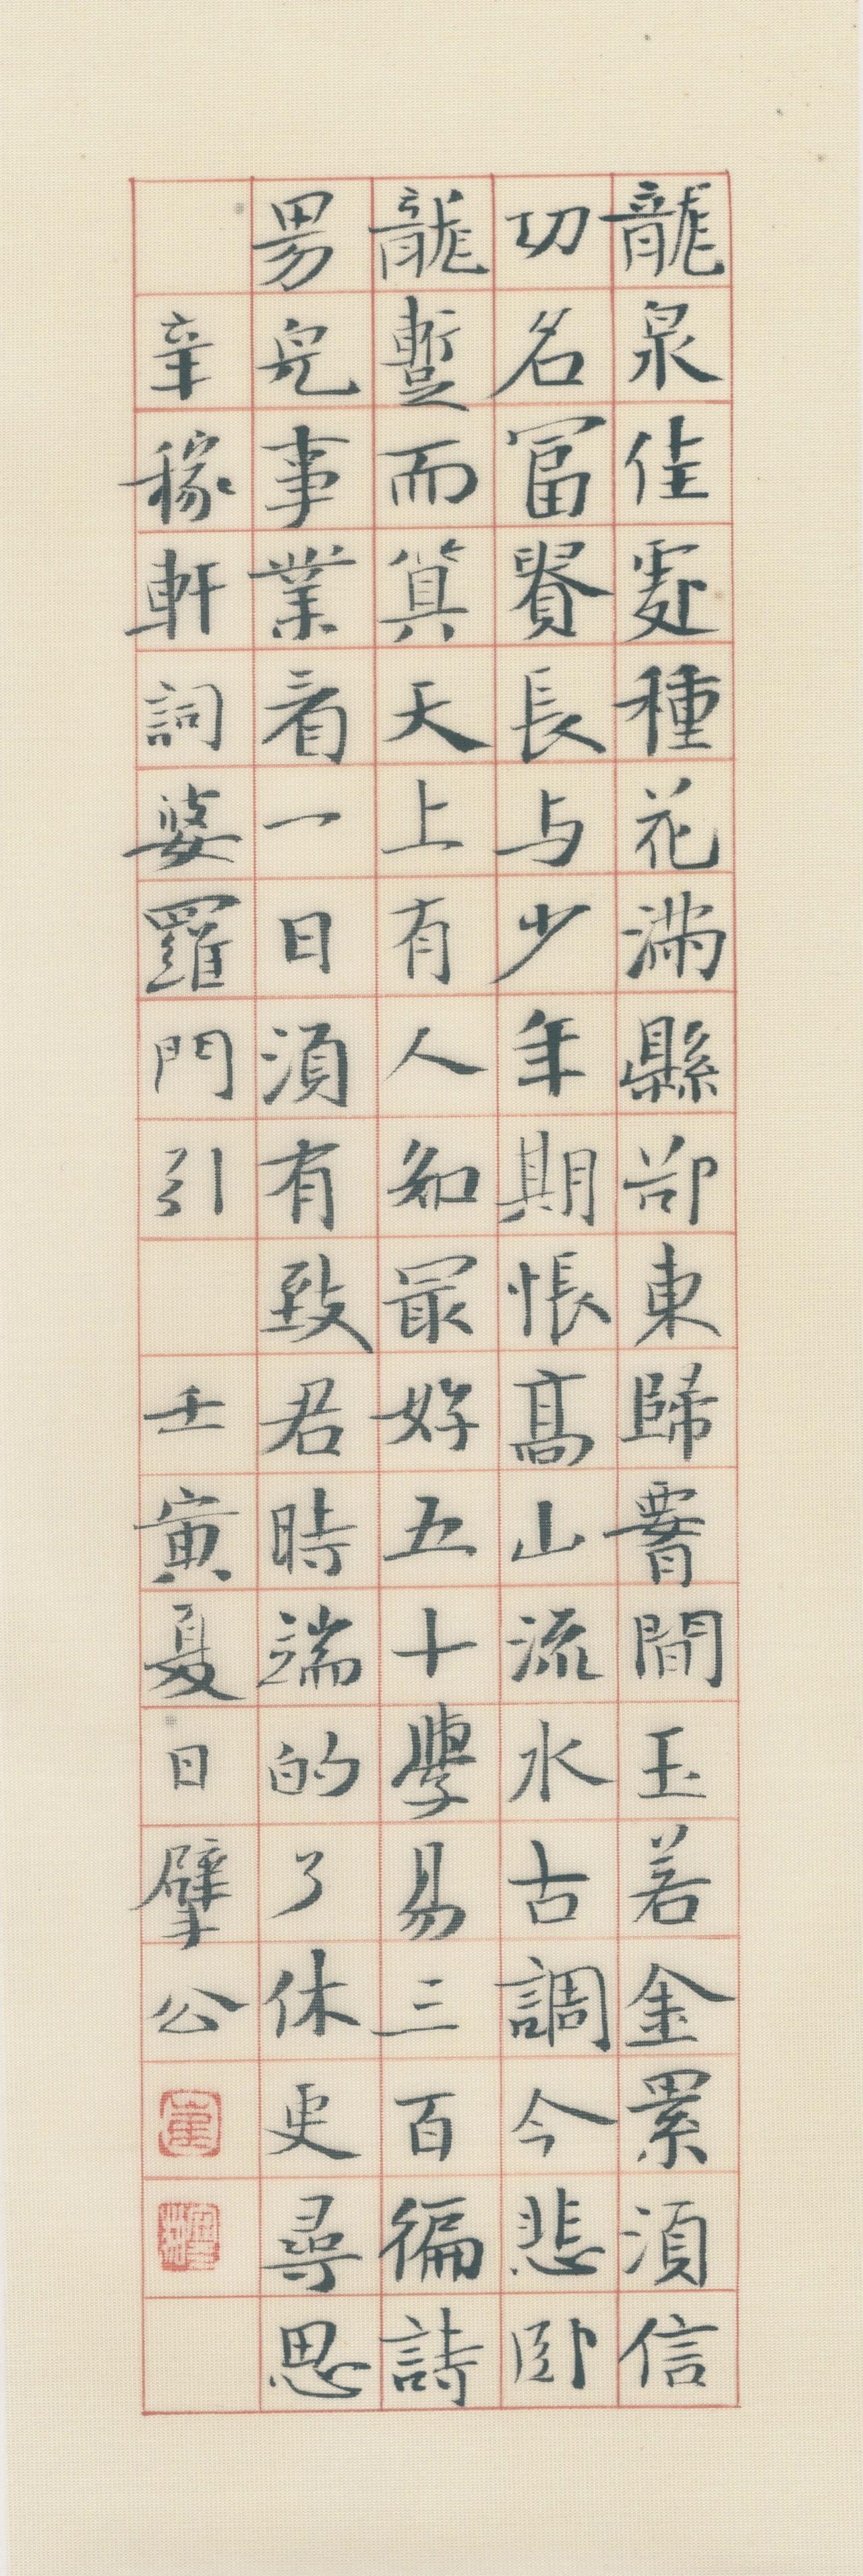 龍泉佳處種花滿縣却東歸腰間玉若金累須信
功名富貴長与少年期悵高山流水古調今悲卧
龍蹔而算天上有人知最好五十學易三百徧詩
男兒事業看一日須有致君時端的了休更尋思
辛稼軒詞婆羅門引 壬寅夏日擘公